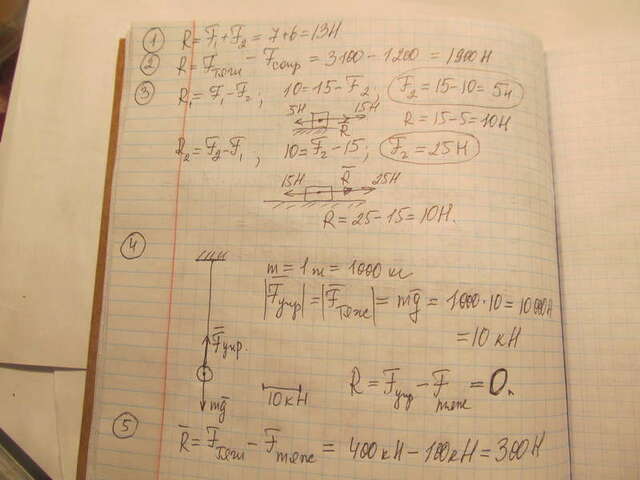 1 R = F₁ + F₂ = 7 + 6 = 13 Н
2 R = Fтяги − Fсопр = 3100 − 1200 = 1900 Н
3 R₁ = F₁ − F₂; 10 = 15 − F₂, F₂ = 15 − 10 = 5 Н
5Н 15Н
R̄
R = 15 − 5 = 10Н
R₂ = F₂ − F₁; 10 = F₂ − 15; F₂ = 25 Н
15Н R̄ 25Н
R = 25 − 15 = 10Н.
4
m = 1 т = 1000 кг
|F̄упр| = |F̄тяж| = mḡ = 1000·10 = 10 000 Н
= 10 кН
F̄упр.
mḡ
10 кН
R = Fупр − Fтяж = 0.
5 R̄ = F̄тяги − F̄тяж = 400 кН − 100 кН = 300 Н